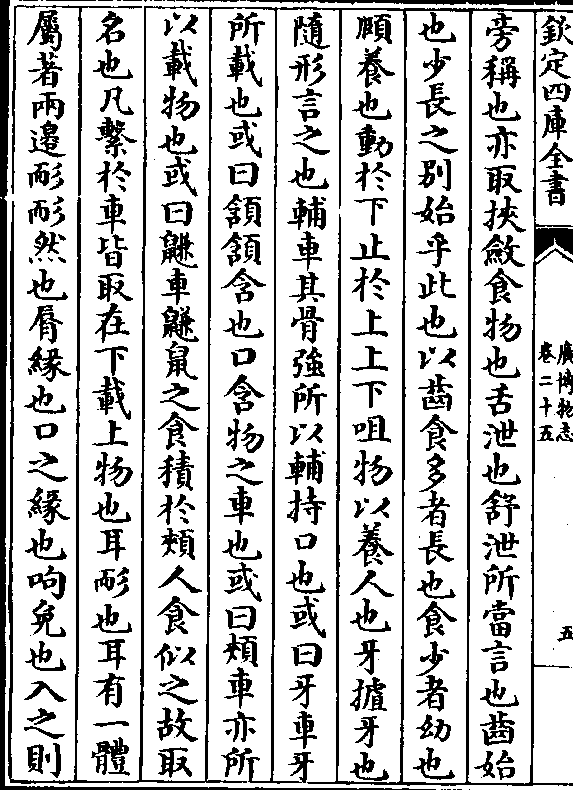 欽定四庫全書
廣博物志
卷二十五
五
旁稱也亦取挾斂食物也舌泄也舒泄所當言也齒始
也少長之别始乎此也以齒食多者長也食少者幼也
頤養也動於下止於上上下咀物以養人也牙摣牙也
隨形言之也輔車其骨強所以輔持口也或曰牙車牙
所載也或曰頷頷含也口含物之車也或曰頰車亦所
以載物也或曰鼸車鼸鼠之食積於頰人食似之故取
名也凡繫於車皆取在下載上物也耳耏也耳有一體
屬著兩邉耏耏然也脣緣也口之緣也吻免也入之則